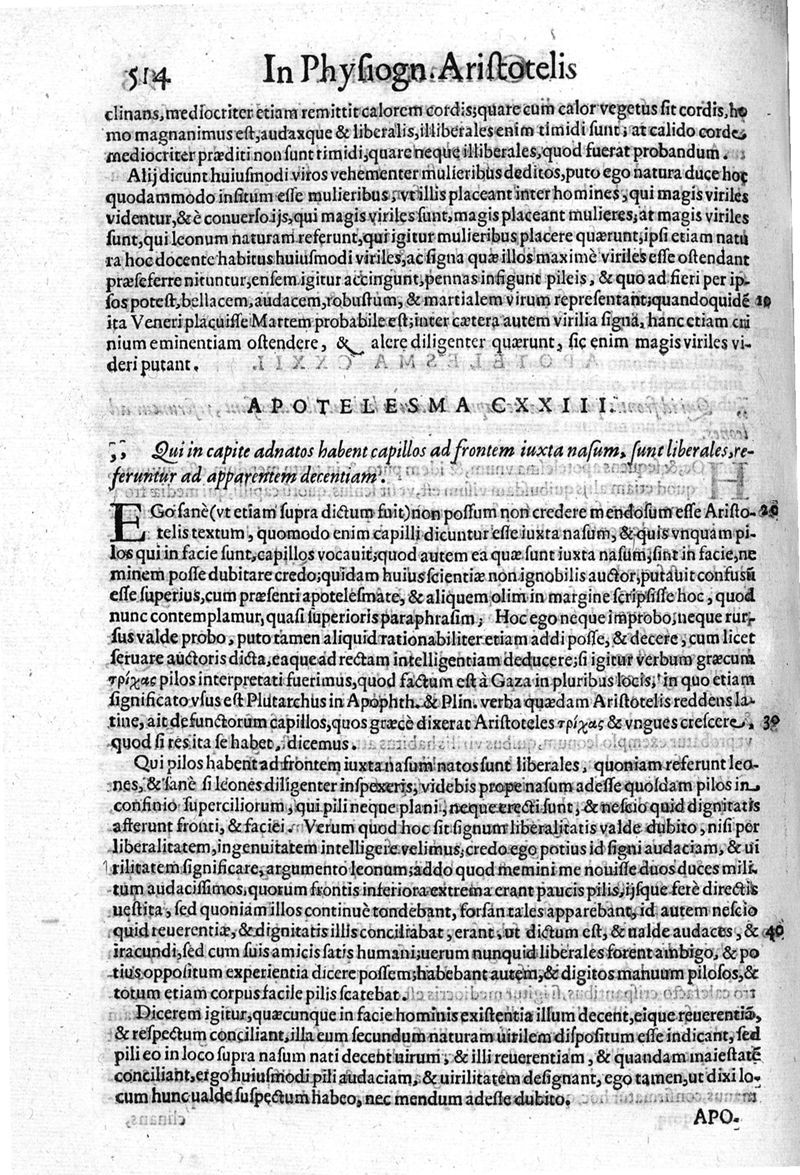 514 In Physiogn. Aristotelis
clinans, mediocriter etiam remittit calorem cordis; quare cum calor vegetus sit cordis, ho
mo magnanimus est, audaxque & liberalis, illiberales enim timidi sunt; at calido corde,
mediocriter præditi non sunt timidi, quare neque illiberales, quod fuerat probandum.
Alij dicunt huiusmodi viros vehementer mulieribus deditos, puto ego natura duce hoc
quodammodo insitum esse mulieribus, vt illis placeant inter homines, qui magis viriles
videntur, & è conuerso ijs, qui magis viriles sunt, magis placeant mulieres, at magis viriles
sunt, qui leonum naturam referunt, qui igitur mulieribus placere quærunt, ipsi etiam natu
ra hoc docente habitus huiusmodi viriles, ac signa quæ illos maximè viriles esse ostendant
præseferre nituntur, ensem igitur accingunt, pennas infigunt pileis, & quo ad fieri per ip-
sos potest, bellacem, audacem, robustum, & martialem virum representant; quandoquidē 10
ita Veneri placuisse Martem probabile est; inter cætera autem virilia signa, hanc etiam cri
nium eminentiam ostendere, & alere diligenter quærunt, sic enim magis viriles vi-
deri putant.
APOTELESMA CXXIII.
,, Qui in capite adnatos habent capillos ad frontem iuxta nasum, sunt liberales, re-
feruntur ad apparentem decentiam.
EGo sanè (vt etiam supra dictum fuit) non possum non credere mendosum esse Aristo- 20
telis textum, quomodo enim capilli dicuntur esse iuxta nasum, & quis vnquam pi-
los qui in facie sunt, capillos vocauit; quod autem ea quæ sunt iuxta nasum, sint in facie, ne
minem posse dubitare credo; quidam huius scientiæ non ignobilis auctor, putauit confusū
esse superius, cum præsenti apotelesmate, & aliquem olim in margine scripsisse hoc, quod
nunc contemplamur, quasi superioris paraphrasim; Hoc ego neque improbo, neque rur-
sus valde probo, puto tamen aliquid rationabiliter etiam addi posse, & decere, cum licet
seruare auctoris dicta, eaque ad rectam intelligentiam deducere; si igitur verbum græcum
τρίχας pilos interpretati fuerimus, quod factum est à Gaza in pluribus locis, in quo etiam
significato vsus est Plutarchus in Apophth. & Plin. verba quædam Aristotelis reddens la-
tine, ait defunctorum capillos, quos græcè dixerat Aristoteles τρίχας & vngues crescere, 30
quod si res ita se habet, dicemus.
Qui pilos habent ad frontem iuxta nasum natos sunt liberales, quoniam referunt leo-
nes, & sanè si leones diligenter inspexeris, videbis prope nasum adesse quosdam pilos in
confinio superciliorum, qui pili neque plani, neque erecti sunt, & nescio quid dignitatis
afferunt fronti, & faciei. Verum quod hoc sit signum liberalitatis valde dubito, nisi per
liberalitatem, ingenuitatem intelligere velimus, credo ego potius id signi audaciam, & ui
rilitatem significare, argumento leonum; addo quod memini me nouisse duos duces mili
tum audacissimos, quorum frontis inferiora extrema erant paucis pilis, ijsque ferè directis
uestita, sed quoniam illos continuè tondebant, forsan tales apparebant, id autem nescio
quid reuerentiæ, & dignitatis illis conciliabat, erant, ut dictum est, & ualde audaces, & 40
iracundi, sed cum suis amicis satis humani; uerum nunquid liberales forent ambigo, & po
tius oppositum experientia dicere possem; habebant autem, & digitos manuum pilosos, &
totum etiam corpus facile pilis scatebat.
Dicerem igitur, quæcunque in facie hominis existentia illum decent, eique reuerentiā,
& respectum conciliant, illa eum secundum naturam uirilem dispositum esse indicant, sed
pili eo in loco supra nasum nati decent uirum, & illi reuerentiam, & quandam maiestatē
conciliant, ergo huiusmodi pili audaciam, & uirilitatem designant, ego tamen, ut dixi lo-
cum hunc ualde suspectum habeo, nec mendum adesse dubito.
APO-